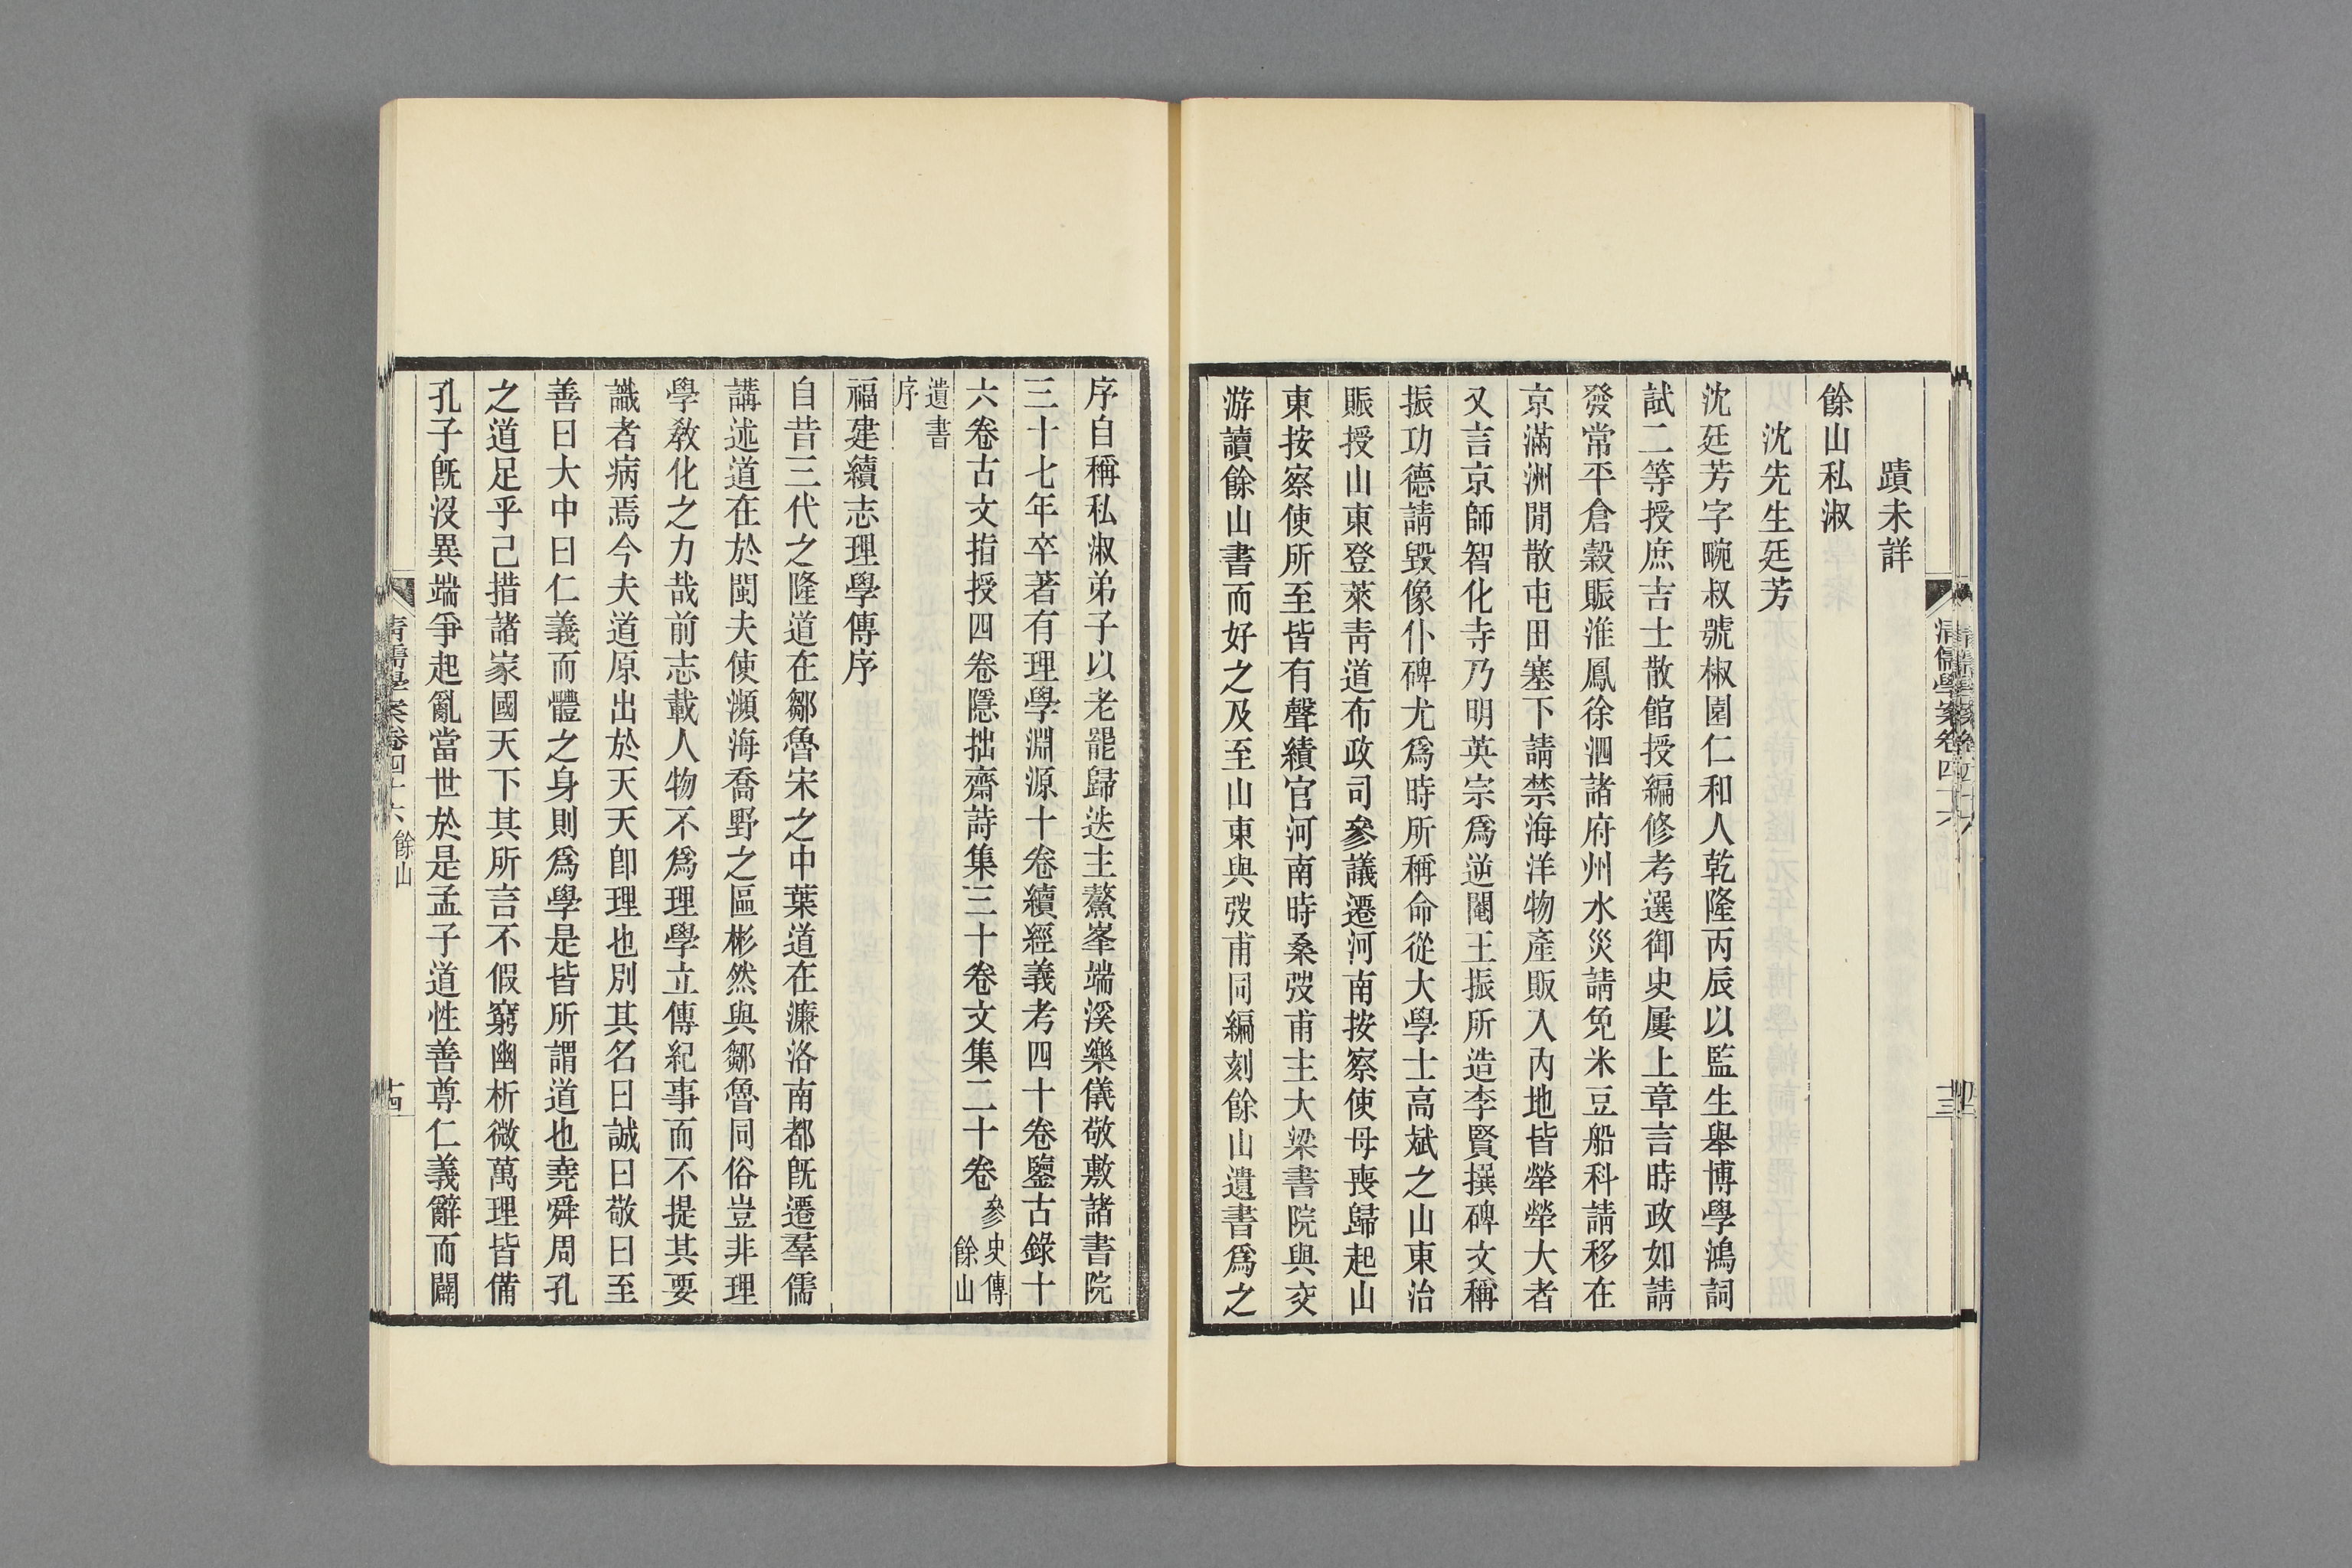 蹟未詳
餘山私淑
沈先生廷芳
沈廷芳字畹叔號椒園仁和人乾隆丙辰以監生舉博學鴻詞
試二等授庶吉士散館授編修考選御史屢上章言時政如請
發常平倉穀賑淮鳳徐泗諸府州水災請免米豆船科請移在
京滿洲閒散屯田塞下請禁海洋物產販入內地皆犖犖大者
又言京師智化寺乃明英宗爲逆閹王振所造李賢撰碑文稱
振功德請毀像仆碑尤爲時所稱命從大學士高斌之山東治
賑授山東登萊靑道布政司參議遷河南按察使母喪歸起山
東按察使所至皆有聲績官河南時桑弢甫主大梁書院與交
游讀餘山書而好之及至山東與弢甫同編刻餘山遺書爲之
清儒學案卷四十六
十三
序自稱私淑弟子以老罷歸迭主鰲峯端溪樂儀敬敷諸書院
三十七年卒著有理學淵源十卷續經義考四十卷鑒古錄十
六卷古文指授四卷隱拙齋詩集三十卷文集二十卷 參史傳餘山
遺書
序
福建續志理學傳序
自昔三代之隆道在鄒魯宋之中葉道在濂洛南都旣遷羣儒
講述道在於閩夫使瀕海喬野之區彬然與鄒魯同俗豈非理
學敎化之力哉前志載人物不爲理學立傳紀事而不提其要
識者病焉今夫道原出於天天卽理也別其名曰誠曰敬曰至
善曰大中曰仁義而體之身則爲學是皆所謂道也堯舜周孔
之道足乎己措諸家國天下其所言不假窮幽析微萬理皆備
孔子旣沒異端爭起亂當世於是孟子道性善尊仁義辭而闢
清儒學案卷四十六 餘山
十四